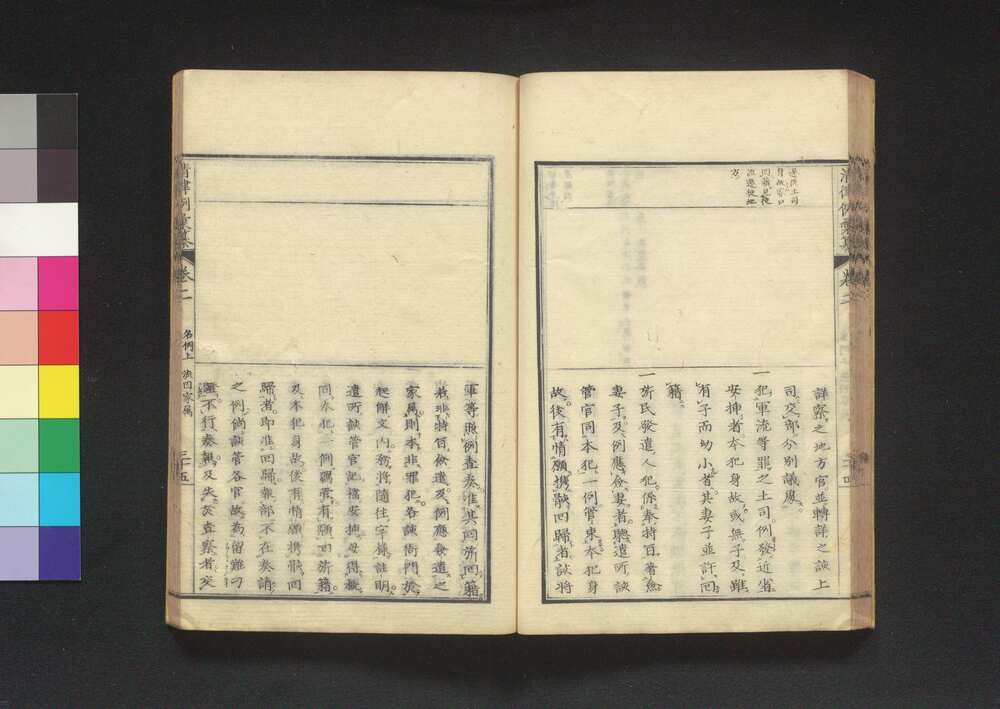 遷徙土司
身故家口
回籍見徒
流遷徙地
方
詳察之地方官並轉詳之該上
司交部分別議處
一犯軍流等罪之土司例發近省
安挿者本犯身故或無子及雖
有子而幼小者其妻子並許回
籍
一旂民發遣人犯係奉特旨著僉
妻子及例應僉妻者聽遣所該
管官同本犯一例管束本犯身
故後有情願携骸回歸者該將
軍等照例查奏准其回旂回籍
若非特旨僉遣及例應僉遣之
家属則本非罪犯各該衙門於
起解文內務將隨往字樣註明
遣所該管官記檔安挿毋得概
同本犯一例羈管有願回旂籍
及本犯身故後有情願携骸回
歸者即准回歸報部不在奏請
之例倘該管各官故為留難刁
不行奏報及失於查察者交
清律例彙纂
卷二
名例上
流囚家属
三十五